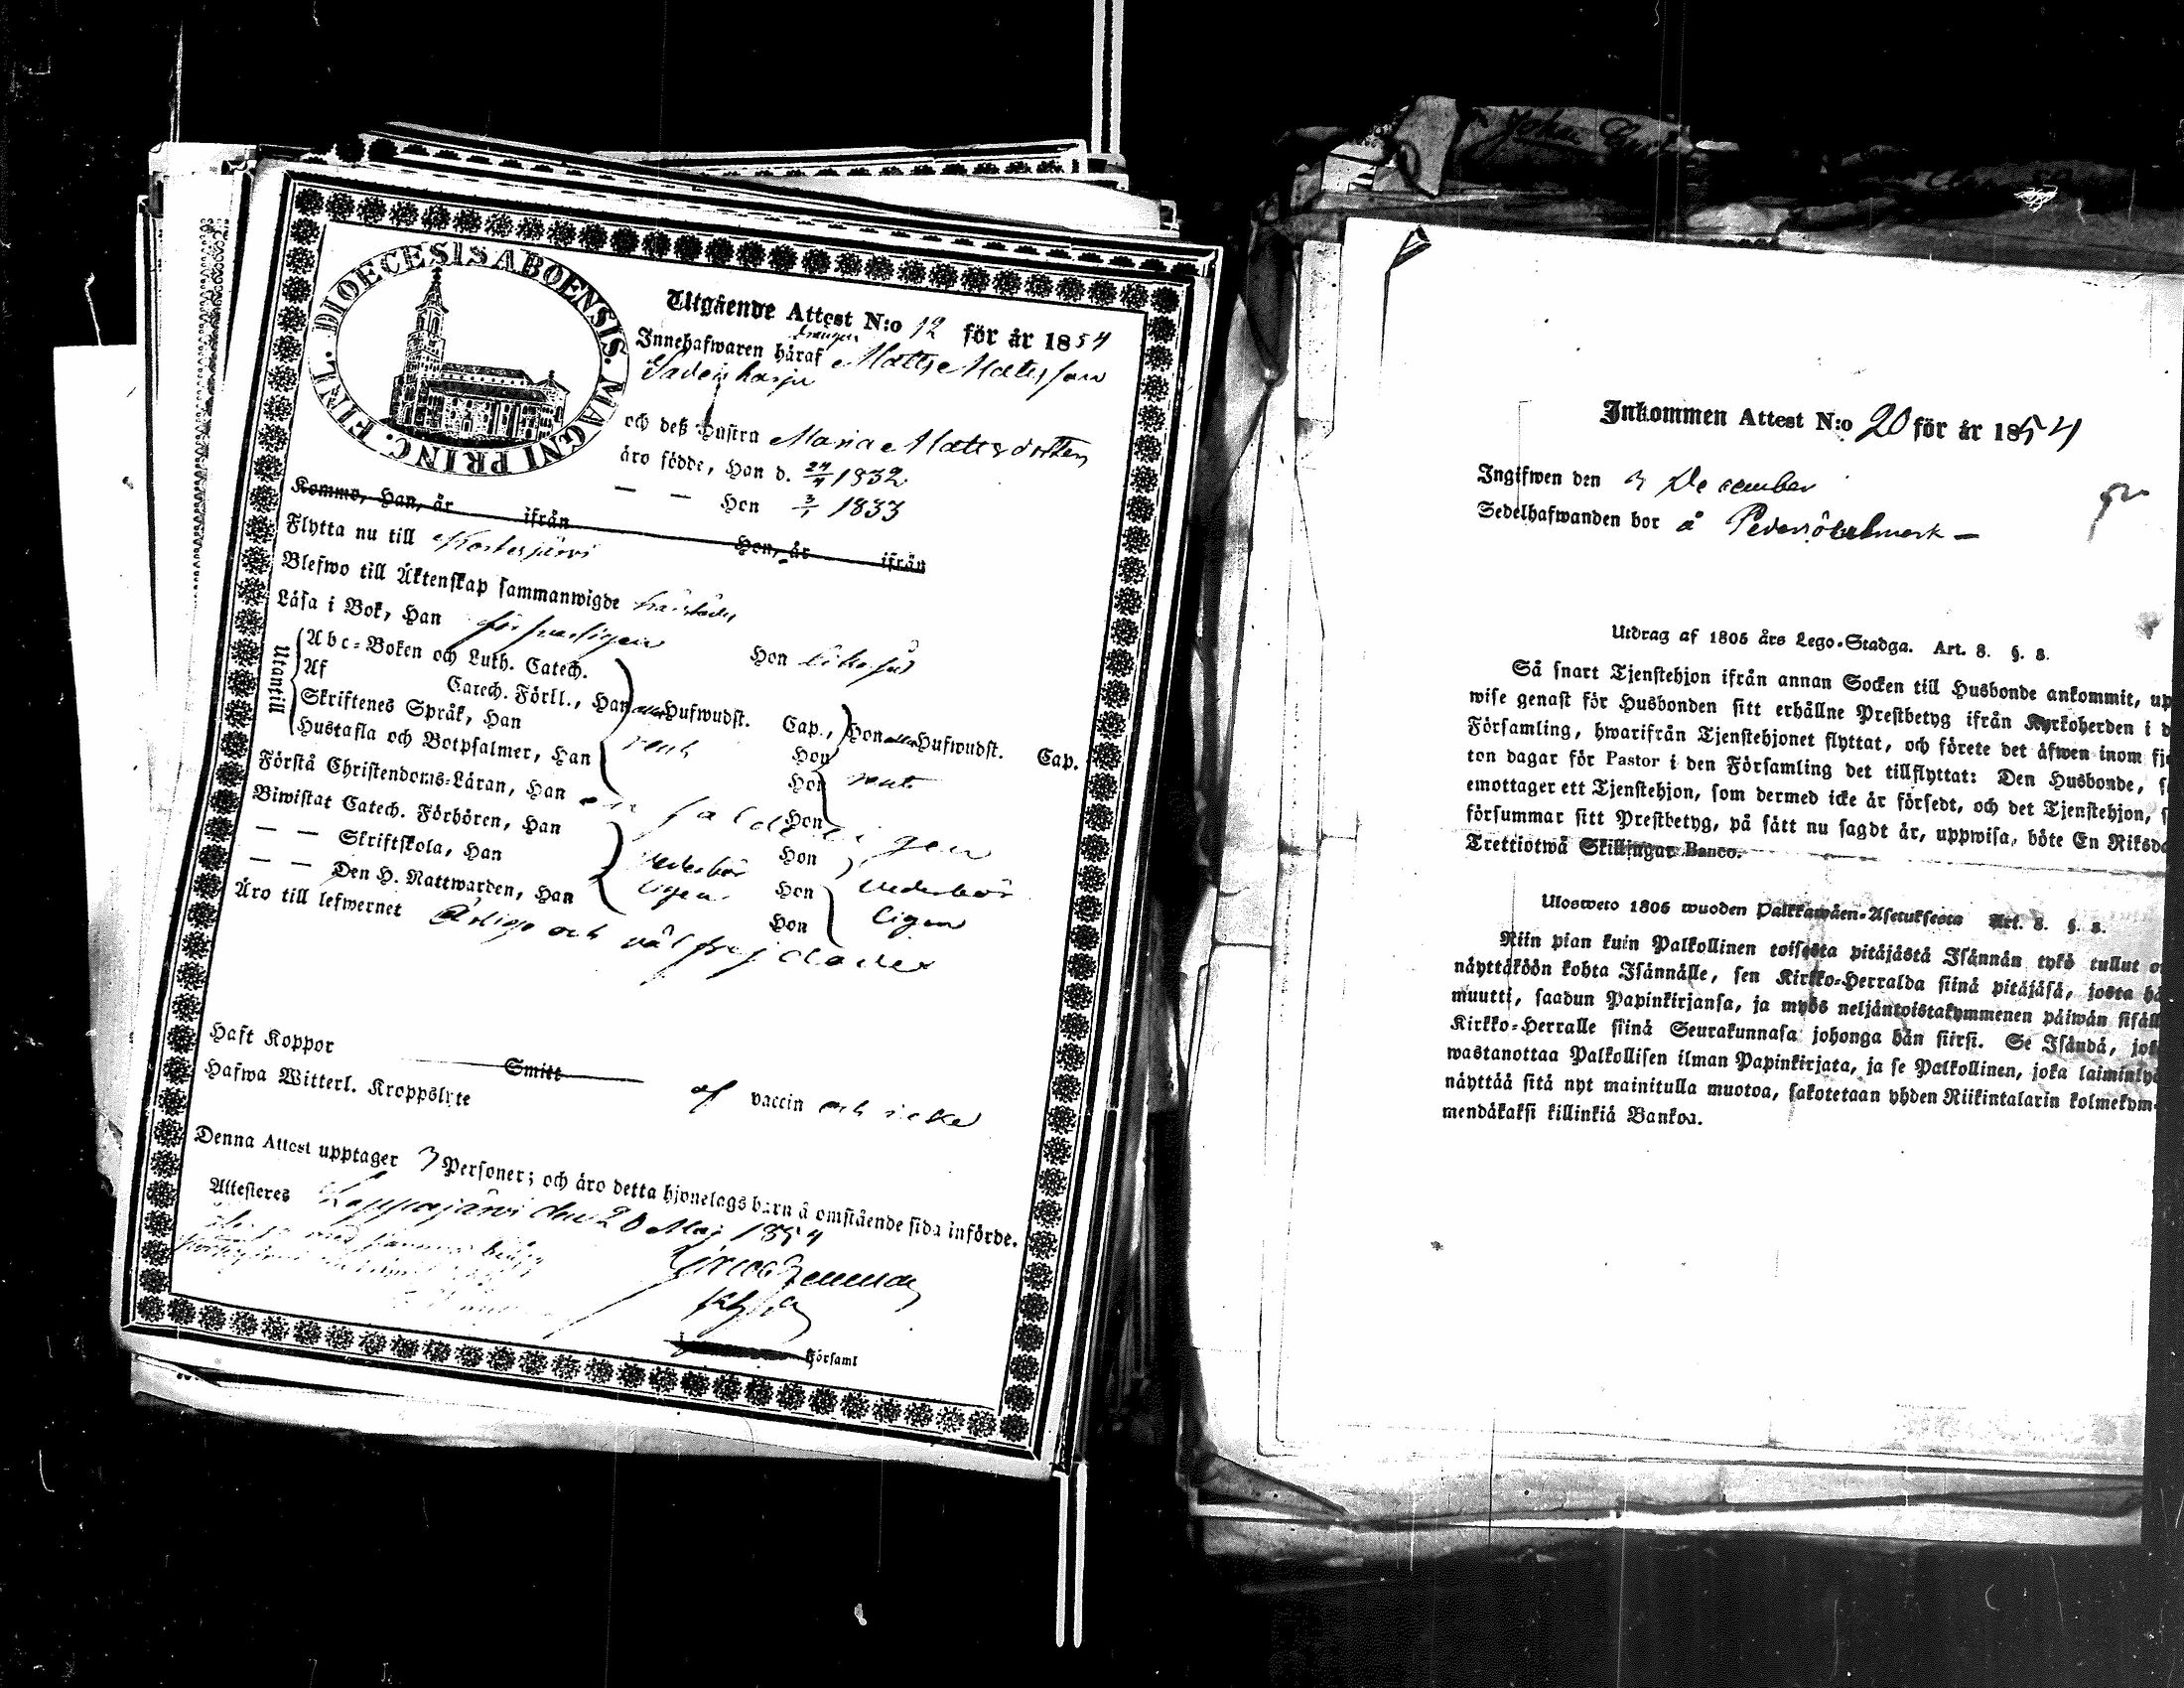 DIOECESIS ABOENSIS. MAGNI PRINC. FINL.
Utgående Attest N:o 12 för år 1854
Innehafwaren häraf Matts Matsson
och deß Hustru Maria Mattsdotter
äro födde, Han d. 24/4 1832
— — Hon 3/1 1833
Kommo, Han, år ifrån Hon, år ifrån
Flytta nu till
Blefwo till Äktenskap sammanwigde härstädes
Läsa i Bok, Han försvarligen Hon likaså
Utantill
Abc-Boken och Luth. Catech.
Af Catech. Förkl., Han alla Hufwudst. Cap., Hon alla Hufwudst. Cap.
Skriftenes Språk, Han Hon
Hustafla och Botpsalmer, Han Hon
Förstå Christendoms-Läran, Han Hon
Biwistat Catech. Förhören, Han Hon
— — Skriftskola, Han vederbör Hon vederbör
— — Den H. Nattwarden, Han ligen Hon ligen
Äro till lefwernet Ärliga och väl frejdade
Haft Koppor Smitt af vaccin och icke
Hafwa Witterl. Kroppslyte
Denna Attest upptager 3 Personer; och äro detta hjonelags barn å omstående sida införde.
Attesteres Lappajärvi den 20 Maj 1854
Församl
Inkommen Attest N:o 20 för år 1854
Ingifwen den 3 December
Sedelhafwanden bor å Pedersöre
Utdrag af 1805 års Lego-Stadga. Art. 8. §. 8.
Så snart Tjenstehjon ifrån annan Socken till Husbonde ankommit, up
wise genast för Husbonden sitt erhållne Prestbetyg ifrån Kyrkoherden i d
Församling, hwarifrån Tjenstehjonet flyttat, och förete det äfwen inom fj
ton dagar för Pastor i den Församling det tillflyttat: Den Husbonde, s
emottager ett Tjenstehjon, som dermed icke är försedt, och det Tjenstehjon, s
försummar sitt Prestbetyg, på sätt nu sagdt är, uppwisa, böte En Riksda
Trettiotwå Skillingar Banco.
Ulosweto 1805 wuoden Palkkawäen-Asetuksesta Art. 8. §. 8.
Niin pian kuin Palkollinen toisesta pitäjästä Isännän tykö tullut o
näyttäköön kohta Isännälle, sen Kirkko-Herralda siinä pitäjäsä, josta hä
muutti, saadun Papinkirjansa, ja myös neljäntoistakymmenen päiwän sisäll
Kirkko-Herralle siinä Seurakunnasa johonga hän siirsi. Se Isändä, jok
wastanottaa Palkollisen ilman Papinkirjata, ja se Palkollinen, joka laiminlyö
näyttää sitä nyt mainitulla muotoa, sakotetaan yhden Riikintalarin kolmekym-
mendäkaksi killinkiä Bankoa.